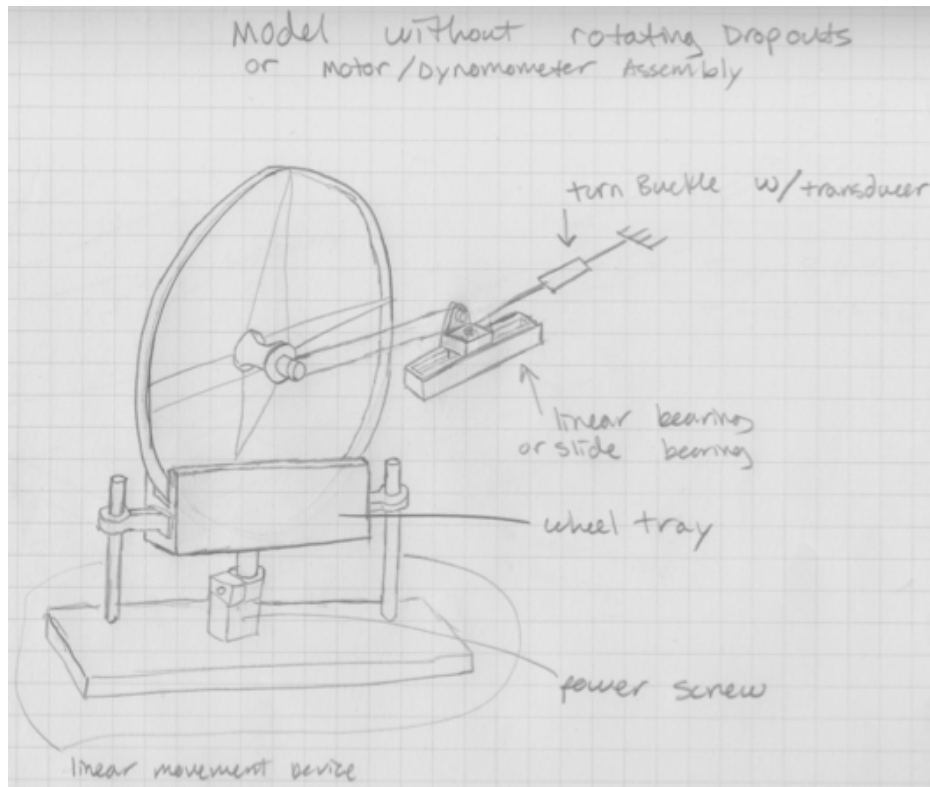 Model without rotating Dropouts
or Motor/Dynomometer Assembly
turn Buckle w/transducer
linear bearing
or slide bearing
wheel tray
power screw
linear movement Device